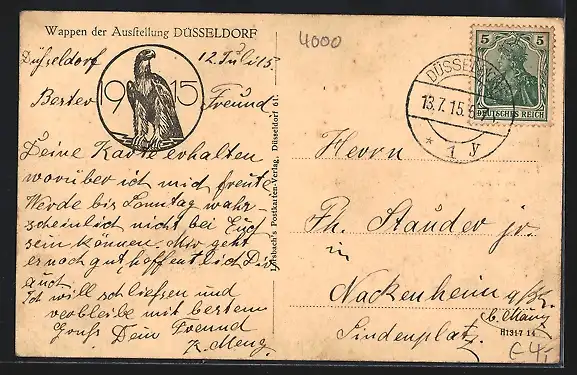 Wappen der Ausstellung DÜSSELDORF
Düsseldorf 12 Juli 15
1915
Bester Freund
Deine Karte erhalten
worüber ich mich freute
Werde bis Sonntag wahr-
scheinlich nicht bei Euch
sein können. Mir geht
es noch gut, hoffentlich Dir
auch
Ich will schliessen und
verbleibe mit bestem
Gruß Dein Freund
K. Meng.
's Postkarten-Verlag, Düsseldorf 61.
4000
5 5
DEUTSCHES REICH
DÜSSEL
13.7.15.
* 1 y
Herrn
Ph. Stauder jr.
in
Nackenheim a/Rh.
b. Mainz
Lindenplatz.
H1317 14
€ 4,-